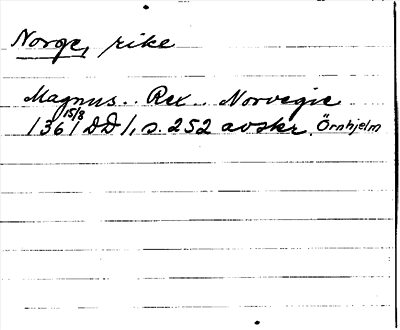 Norge, rike
Magnus.. Rex.. Norvegie
1361 15/8 DD/, s. 252 avskr. Örnhjelm